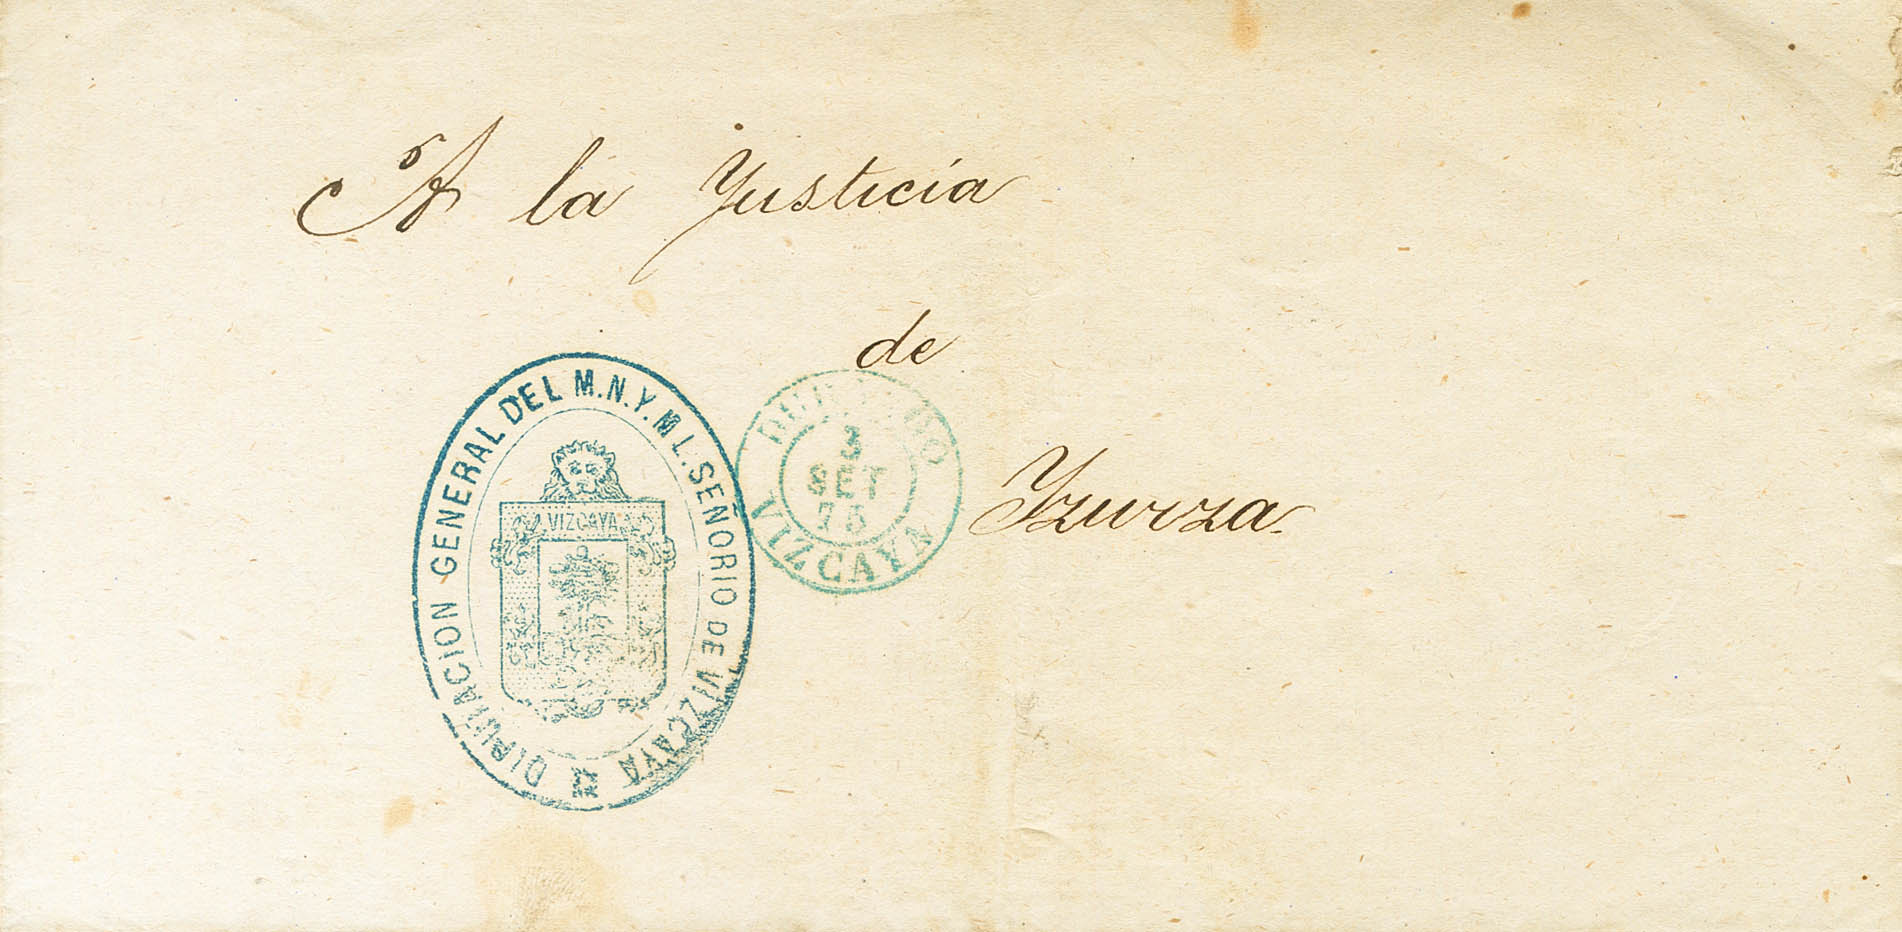 A la Yusticia
de
Yzurza
DIPUTACION GENERAL DEL M.N.Y.M L. SEÑORIO DE VIZCAYA
VIZCAYA
DURANGO
3
SET
75
VIZCAYA